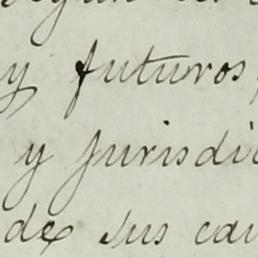 y futuros,
y jurisdi
de sus cau